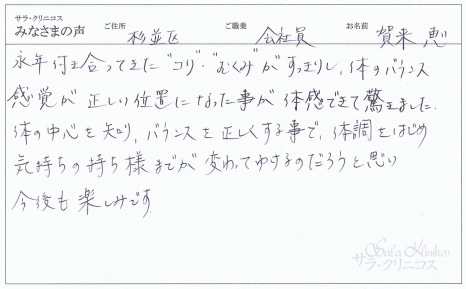 サラ・クリニコス
みなさまの声 ご住所 杉並区 ご職業 会社員 お名前 賀来 恵
永年付き合ってきた"コリ"・"むくみ"がすっきりし、体のバランス
感覚が正しい位置になった事が体感できて驚きました.
体の中心を知り、バランスを正しくする事で、体調をはじめ
気持ちの持ち様までが変わってゆけるのだろうと思い
今後も楽しみです
Sala Klinikos
サラ・クリニコス